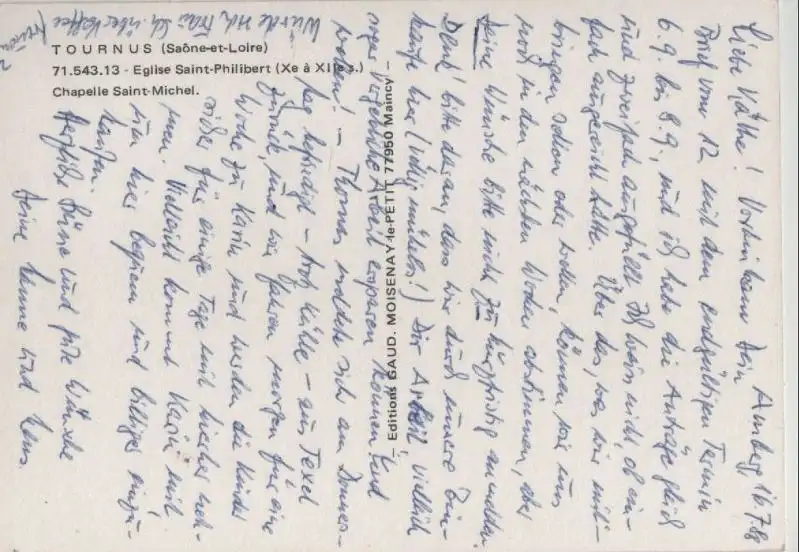 Amberg, 16.7.88
Liebe Käthe! Vorhin kam Dein
Brief vom 12. mit dem endgültigen Termin
6.9. bis 8.9., und ich habe die Anträge gleich
und zweifach ausgefüllt. Ich weiß nicht, ob ein-
fach ausgereicht hätte. Über das, was wir mit-
bringen sollen oder wollen, können wir uns
noch in den nächsten Wochen abstimmen, aber
Deine Wünsche bitte nicht zu kurzfristig anmelden.
Denk' bitte daran, dass wir durch unsere Ein-
käufe hier (völlig mühelos!) Dir Arbeit, vielleich
sogar vergebliche Arbeit ersparen können und
wollen! – Thomas meldete sich am Donners-
tag befriedigt – trotz Kühle – aus Texel
zurück, und wir fahren morgen für eine
Woche zu Karin und werden die Kinder
sicher für einige Tage mit hierher neh-
men. Vielleicht kommt Karin mit
um hier bequem und billiger einzu-
kaufen.
Herzliche Grüße und gute Wünsche
Deine Hanne und Hans.
Würde sich Frau Sch. über Kaffee
freuen?
TOURNUS (Saône-et-Loire)
71.543.13 - Eglise Saint-Philibert (Xe à XIIe s.)
Chapelle Saint-Michel.
— Editions GAUD. MOISENAY-le-PETIT 77950 Maincy —